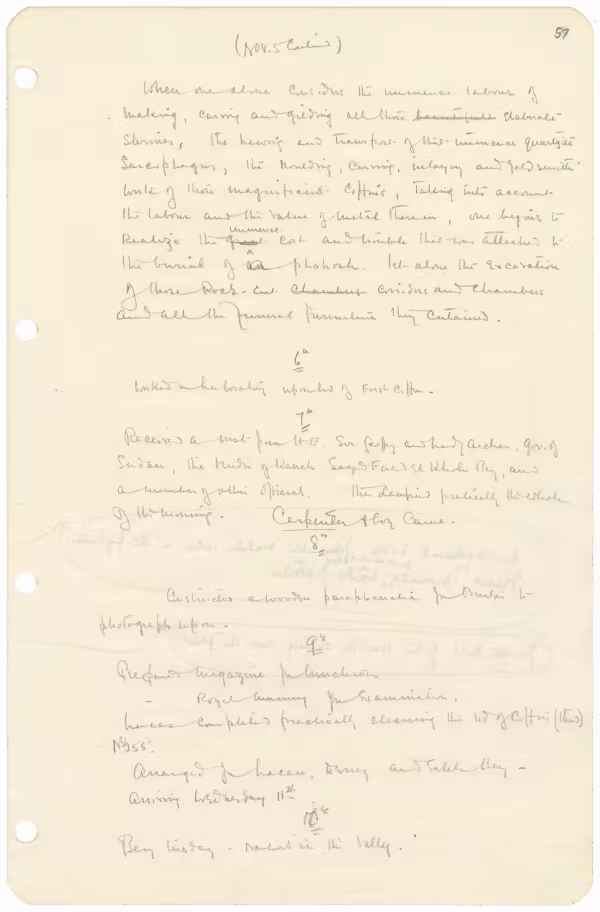 57
(Nov. 5 Contind)
When one alone considers the immense labour of
making, carving and gilding all those beautiful elaborate
Shrines, the hewing and transport of that immense quartzite
Sarcophagus, the moulding, carving, inlaying and goldsmiths'
work of those magnificent Coffins, taking into account
the labour and the value of metal therein, one begins to
immense
realize the great cost and trouble that was attached to
the burial of a phahoah. let alone the excavation
of those Rock-cut Chambers corridors and Chambers
and all the funeral furniture they contained.
6th
Worked on upon lid of First Coffin.
7th
Received a visit from H.E. Sir Geoffry and Lady Archer. Gov. of
Sudan, the Mudir of Keneh Sayed Fuad El Kholi Bey, and
a number of other officials. This occupied practically the whole
of the morning. Carpenter & boy Came.
8th
Constructed a wooden paraphanalia for Burton to
photograph upon.
9th
Prepared Magazine for luncheon
– Royal Mummy for Examination.
Lucas completed practically cleaning the lid of Coffin (third)
No 255.
Arranged for Lacau, Derry and Saleh Bey –
arriving Wednesday 11th
10th
Being Tuesday – no work in the Valley.